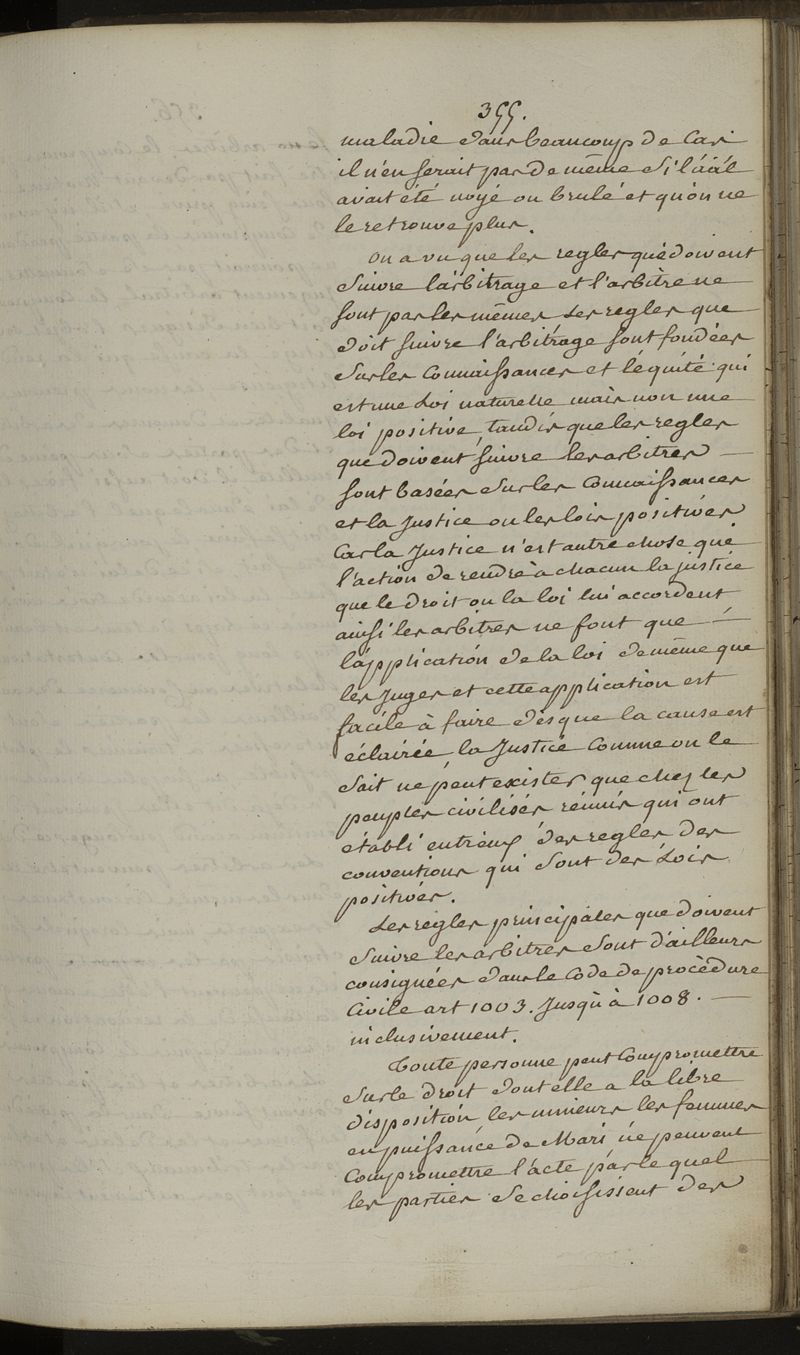 355.
maladie dans beaucoup de Cas
il n'en serait pas de même si l'áál
avait été noyé ou brulé et qu'on ne
le retrouve plus.
on a vu que les regles que doivent
suivre l'arbitrage et l'arbitre ne
sont pas les mêmes les regles que
doit suivre l'arbitrage sont fondées
sur les Connaissances et l'équité qui
est une Loi naturelle mais non une
loi positive, tandis que les regles
que doivent suivre les arbitres —
sont basées sur les Connaissances
et la Justice ou les lois positives
Car la Justice n'est autre chose que
l'action de rendre à chacun la justice
que le droit ou la loi lui accordent
ainsi les arbitres ne font que —
l'application de la loi de même que
les Juges et cette application est
facile à faire dès que la cause est
éclairée, la Justice Comme on le
sait ne peut exister que chez les
peuples civilisés réunis qui ont
établi entr'eux des regles des
conventions qui sont des Lois
positives.
Les regles principales que doivent
suivre les arbitres sont d'ailleurs
consignées dans le Code de procèdure
Civile art 1003. Jusqu'à 1008. —
inclusivement.
Toute personne peut Compromettre
sur le droit dont elle a la libre
disposition, les mineurs les femmes
en puissance de Mari ne peuvent
Compromettre l'acte par le quel
les parties se choisissent des